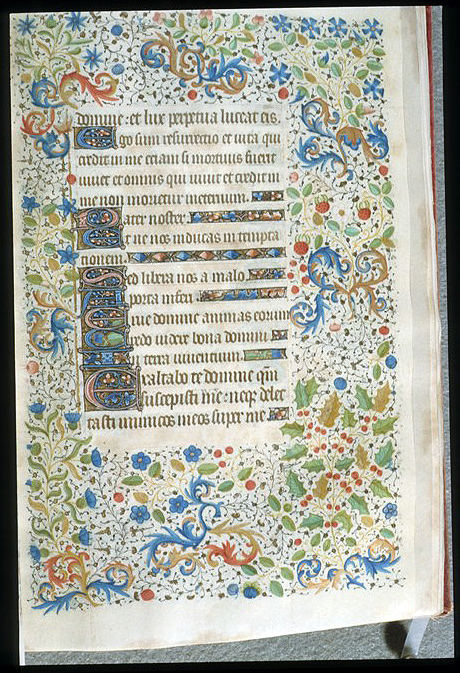 domine: et lux perpetua luceat eis.
Ego sum resurrectio et vita qui
credit in me etiam si mortuus fuerit
vivet et omnis qui vivit et credit in
me non morietur in eternum.
Pater noster
Et ne nos inducas in tempta
tionem.
Sed libera nos a malo.
A porta inferi
Erue domine animas eorum
Credo videre bona domini
In terra viventium.
Exaltabo te domine qm̄
suscepisti me: neqʒ delec
tasti inimicos meos super me